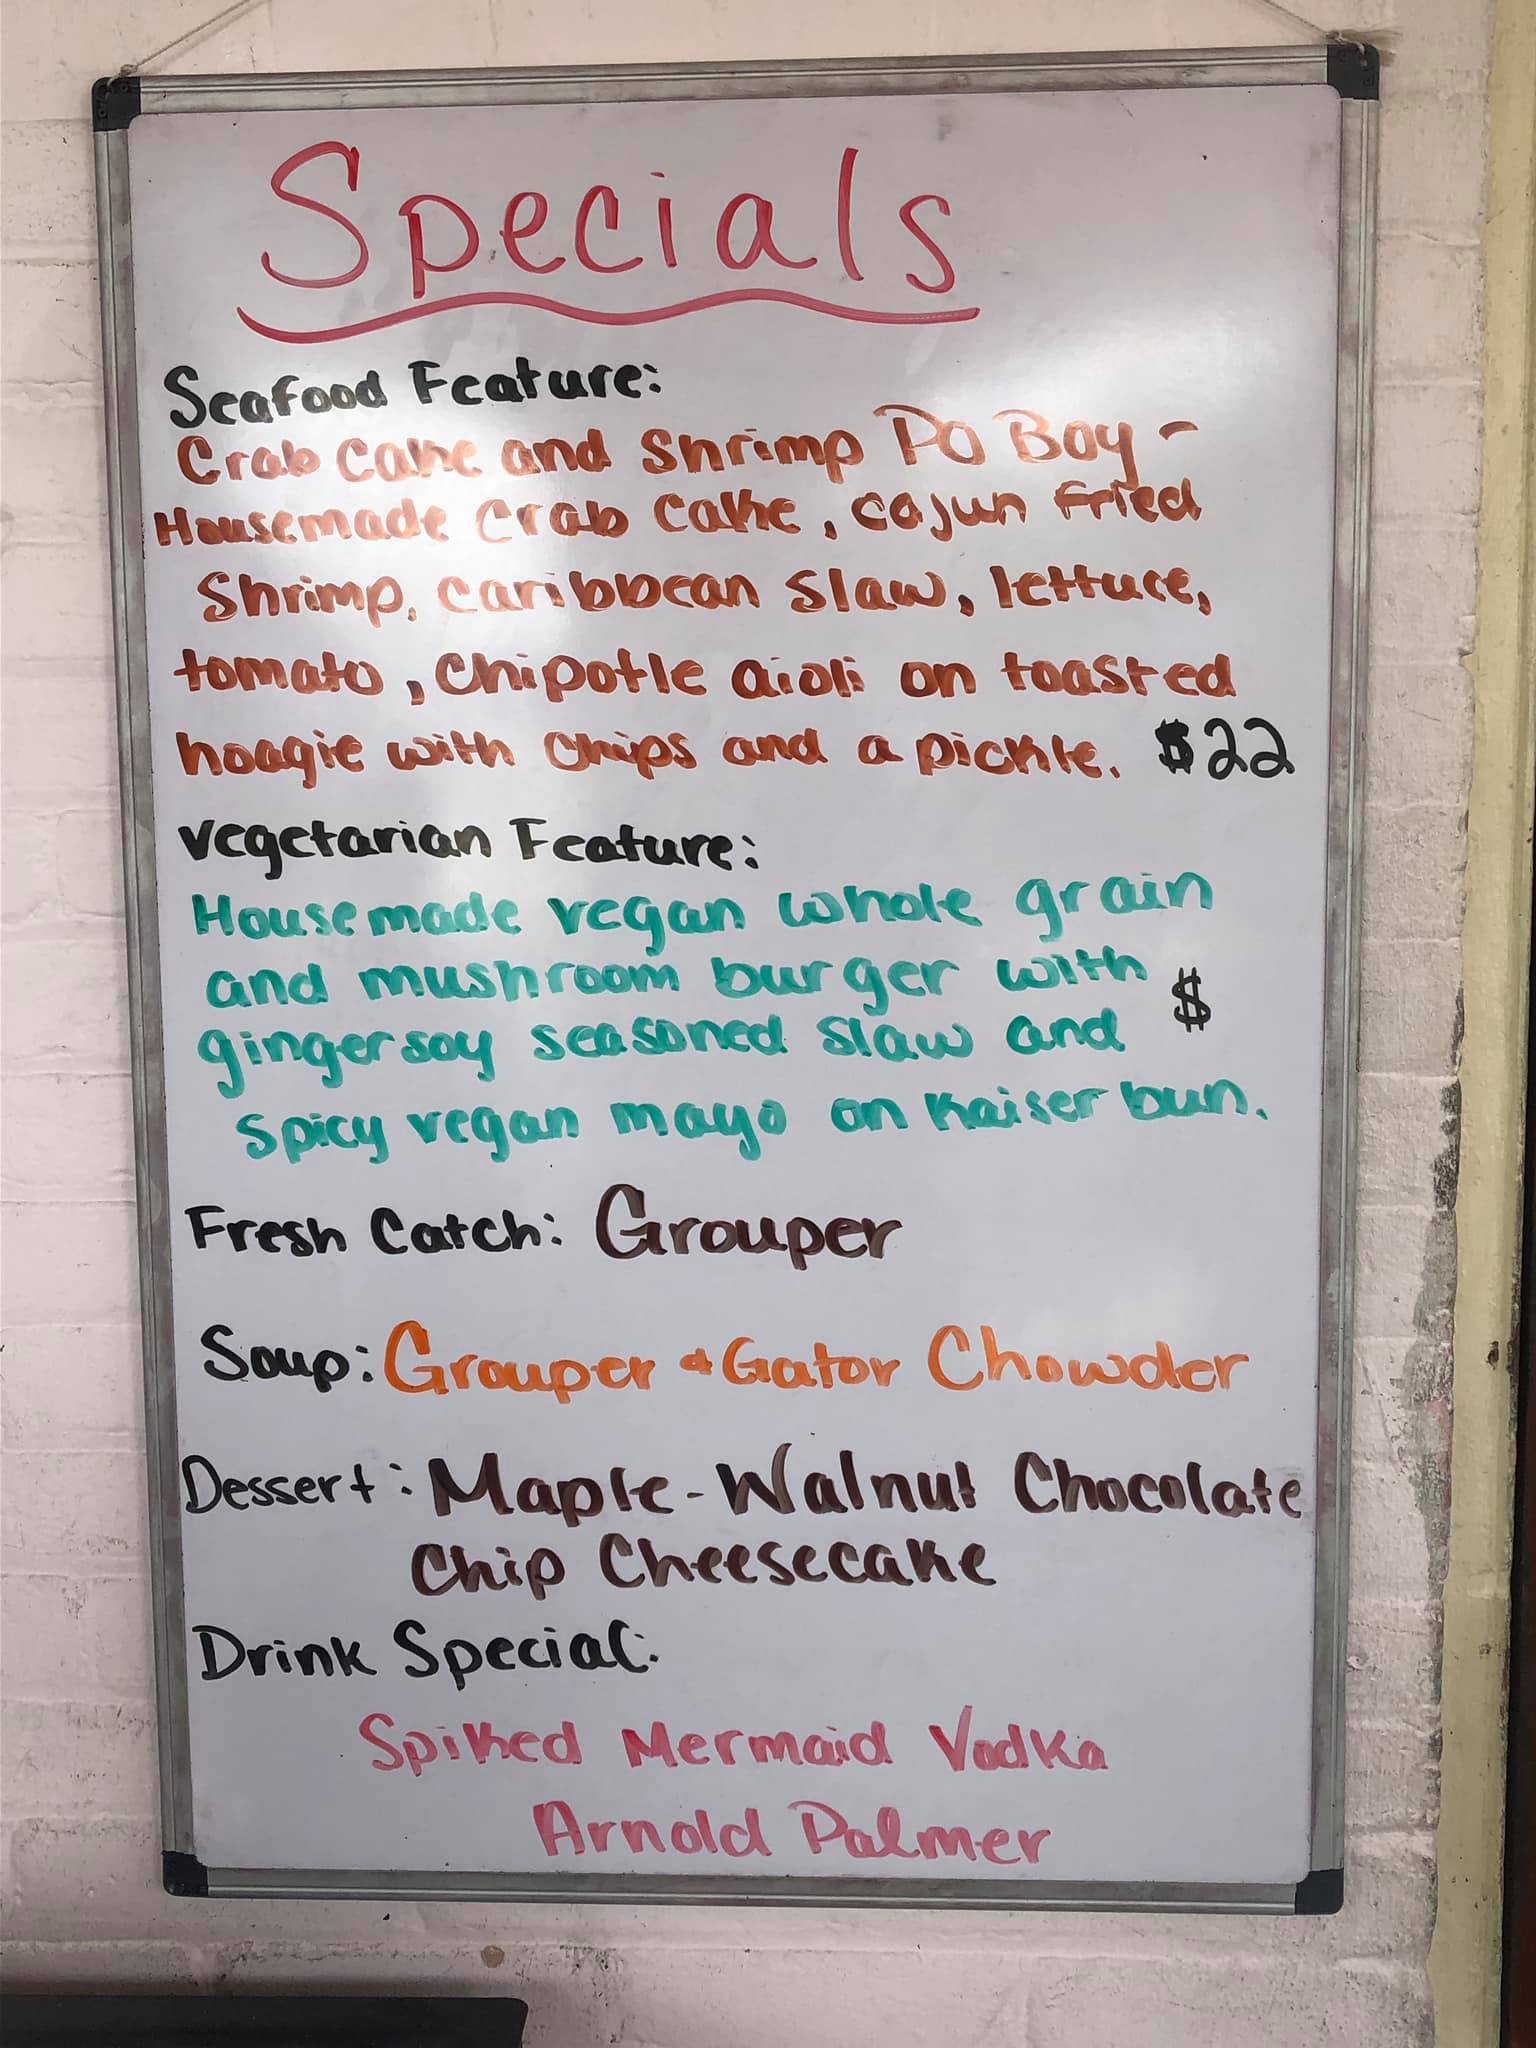 Specials
Seafood Feature:
Crab Cake and Shrimp Po Boy -
Housemade Crab Cake, cajun fried
Shrimp, caribbean slaw, lettuce,
tomato, chipotle aioli on toasted
hoagie with chips and a pickle. $22
vegetarian Feature:
Housemade vegan whole grain
and mushroom burger with
ginger soy seasoned slaw and $
spicy vegan mayo on kaiser bun.
Fresh Catch: Grouper
Soup: Grouper & Gator Chowder
Dessert: Maple-Walnut Chocolate
Chip Cheesecake
Drink Special:
Spiked Mermaid Vodka
Arnold Palmer